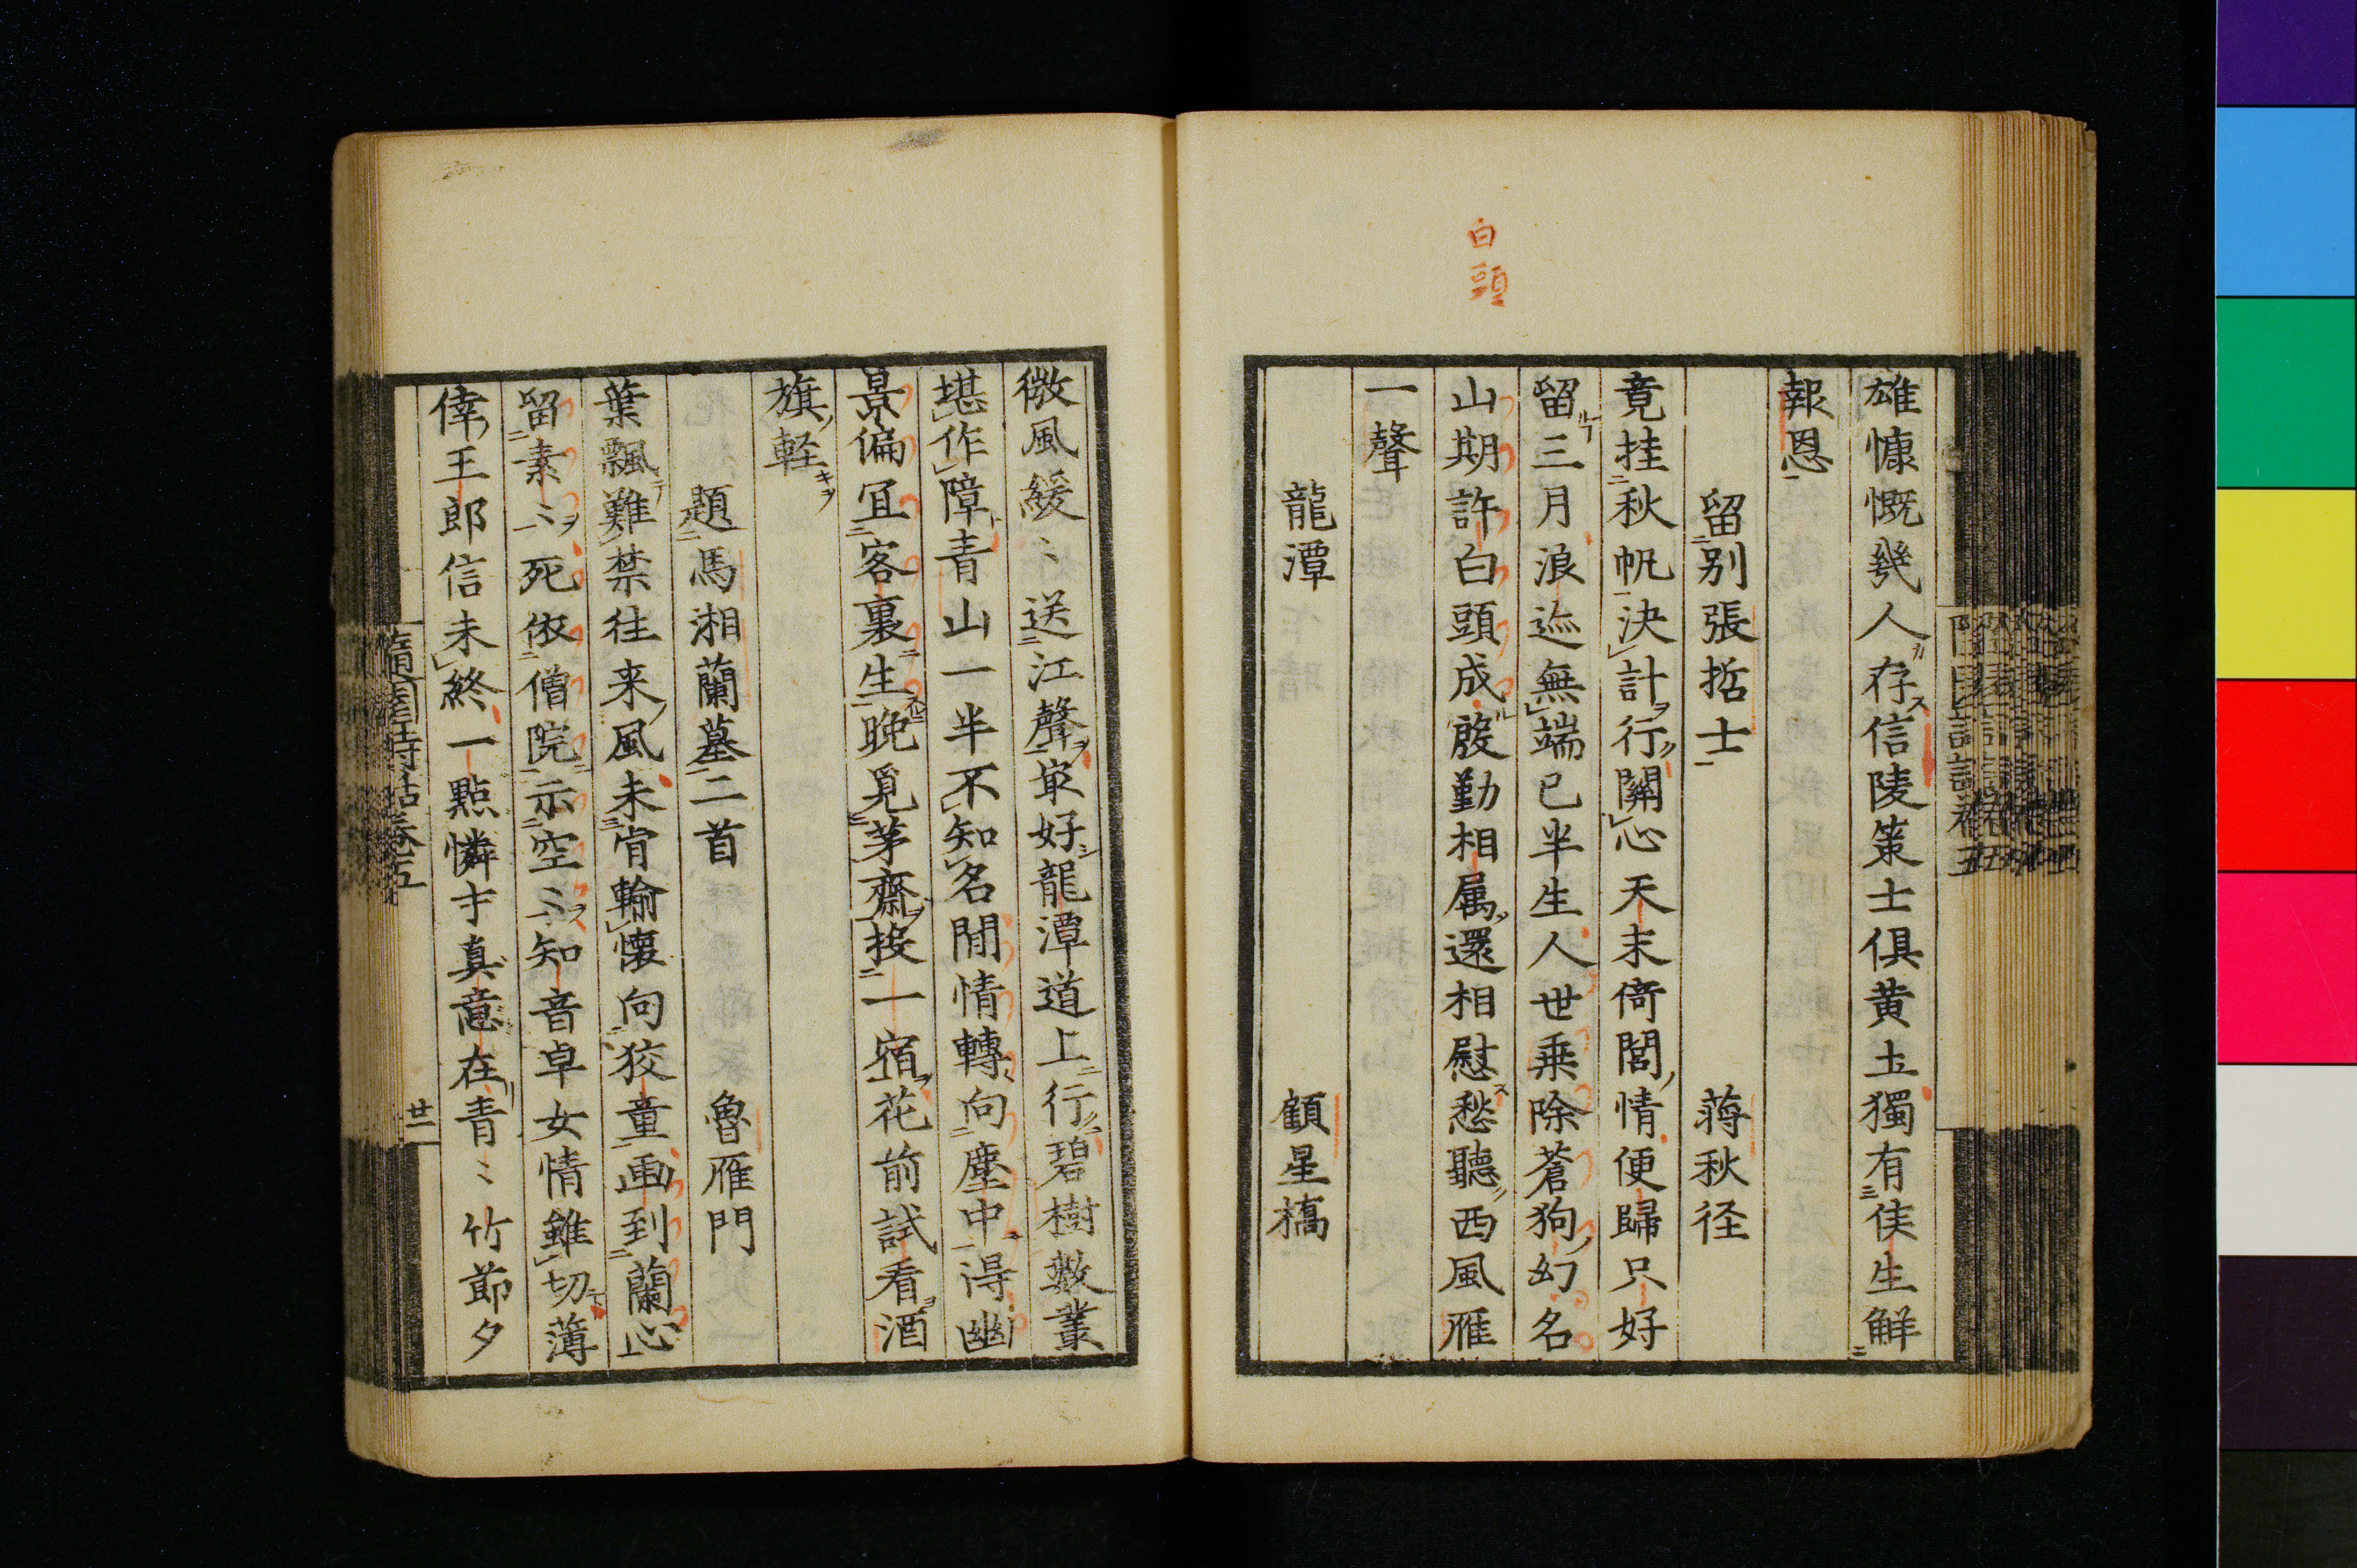 白頭
雄慷慨幾人存信陵策士俱黄土獨有侯生解
報恩
留别張哲士　蒋秋径
竟挂秋帆決計行關心天末倚閭情便歸只好
留三月浪迹無端已半生人世乗除蒼狗幻名
山期許白頭成殷勤相属還相慰愁聽西風雁
一聲
龍潭　顧星橋
微風緩〻送江聲㝡好龍潭道上行碧樹數叢
堪作障青山一半不知名閒情轉向塵中得幽
景偏冝客裏生晩覓茅齋投一宿花前試看酒
旗軽
題馬湘蘭墓二首　魯雁門
葉飄難禁往来風未肯輸懐向狡童画到蘭心
留素〻死依僧院示空〻知音卓女情雖切薄
倖王郎信未終一點憐才真意在青〻竹節夕
隨園詩話卷五
廿二